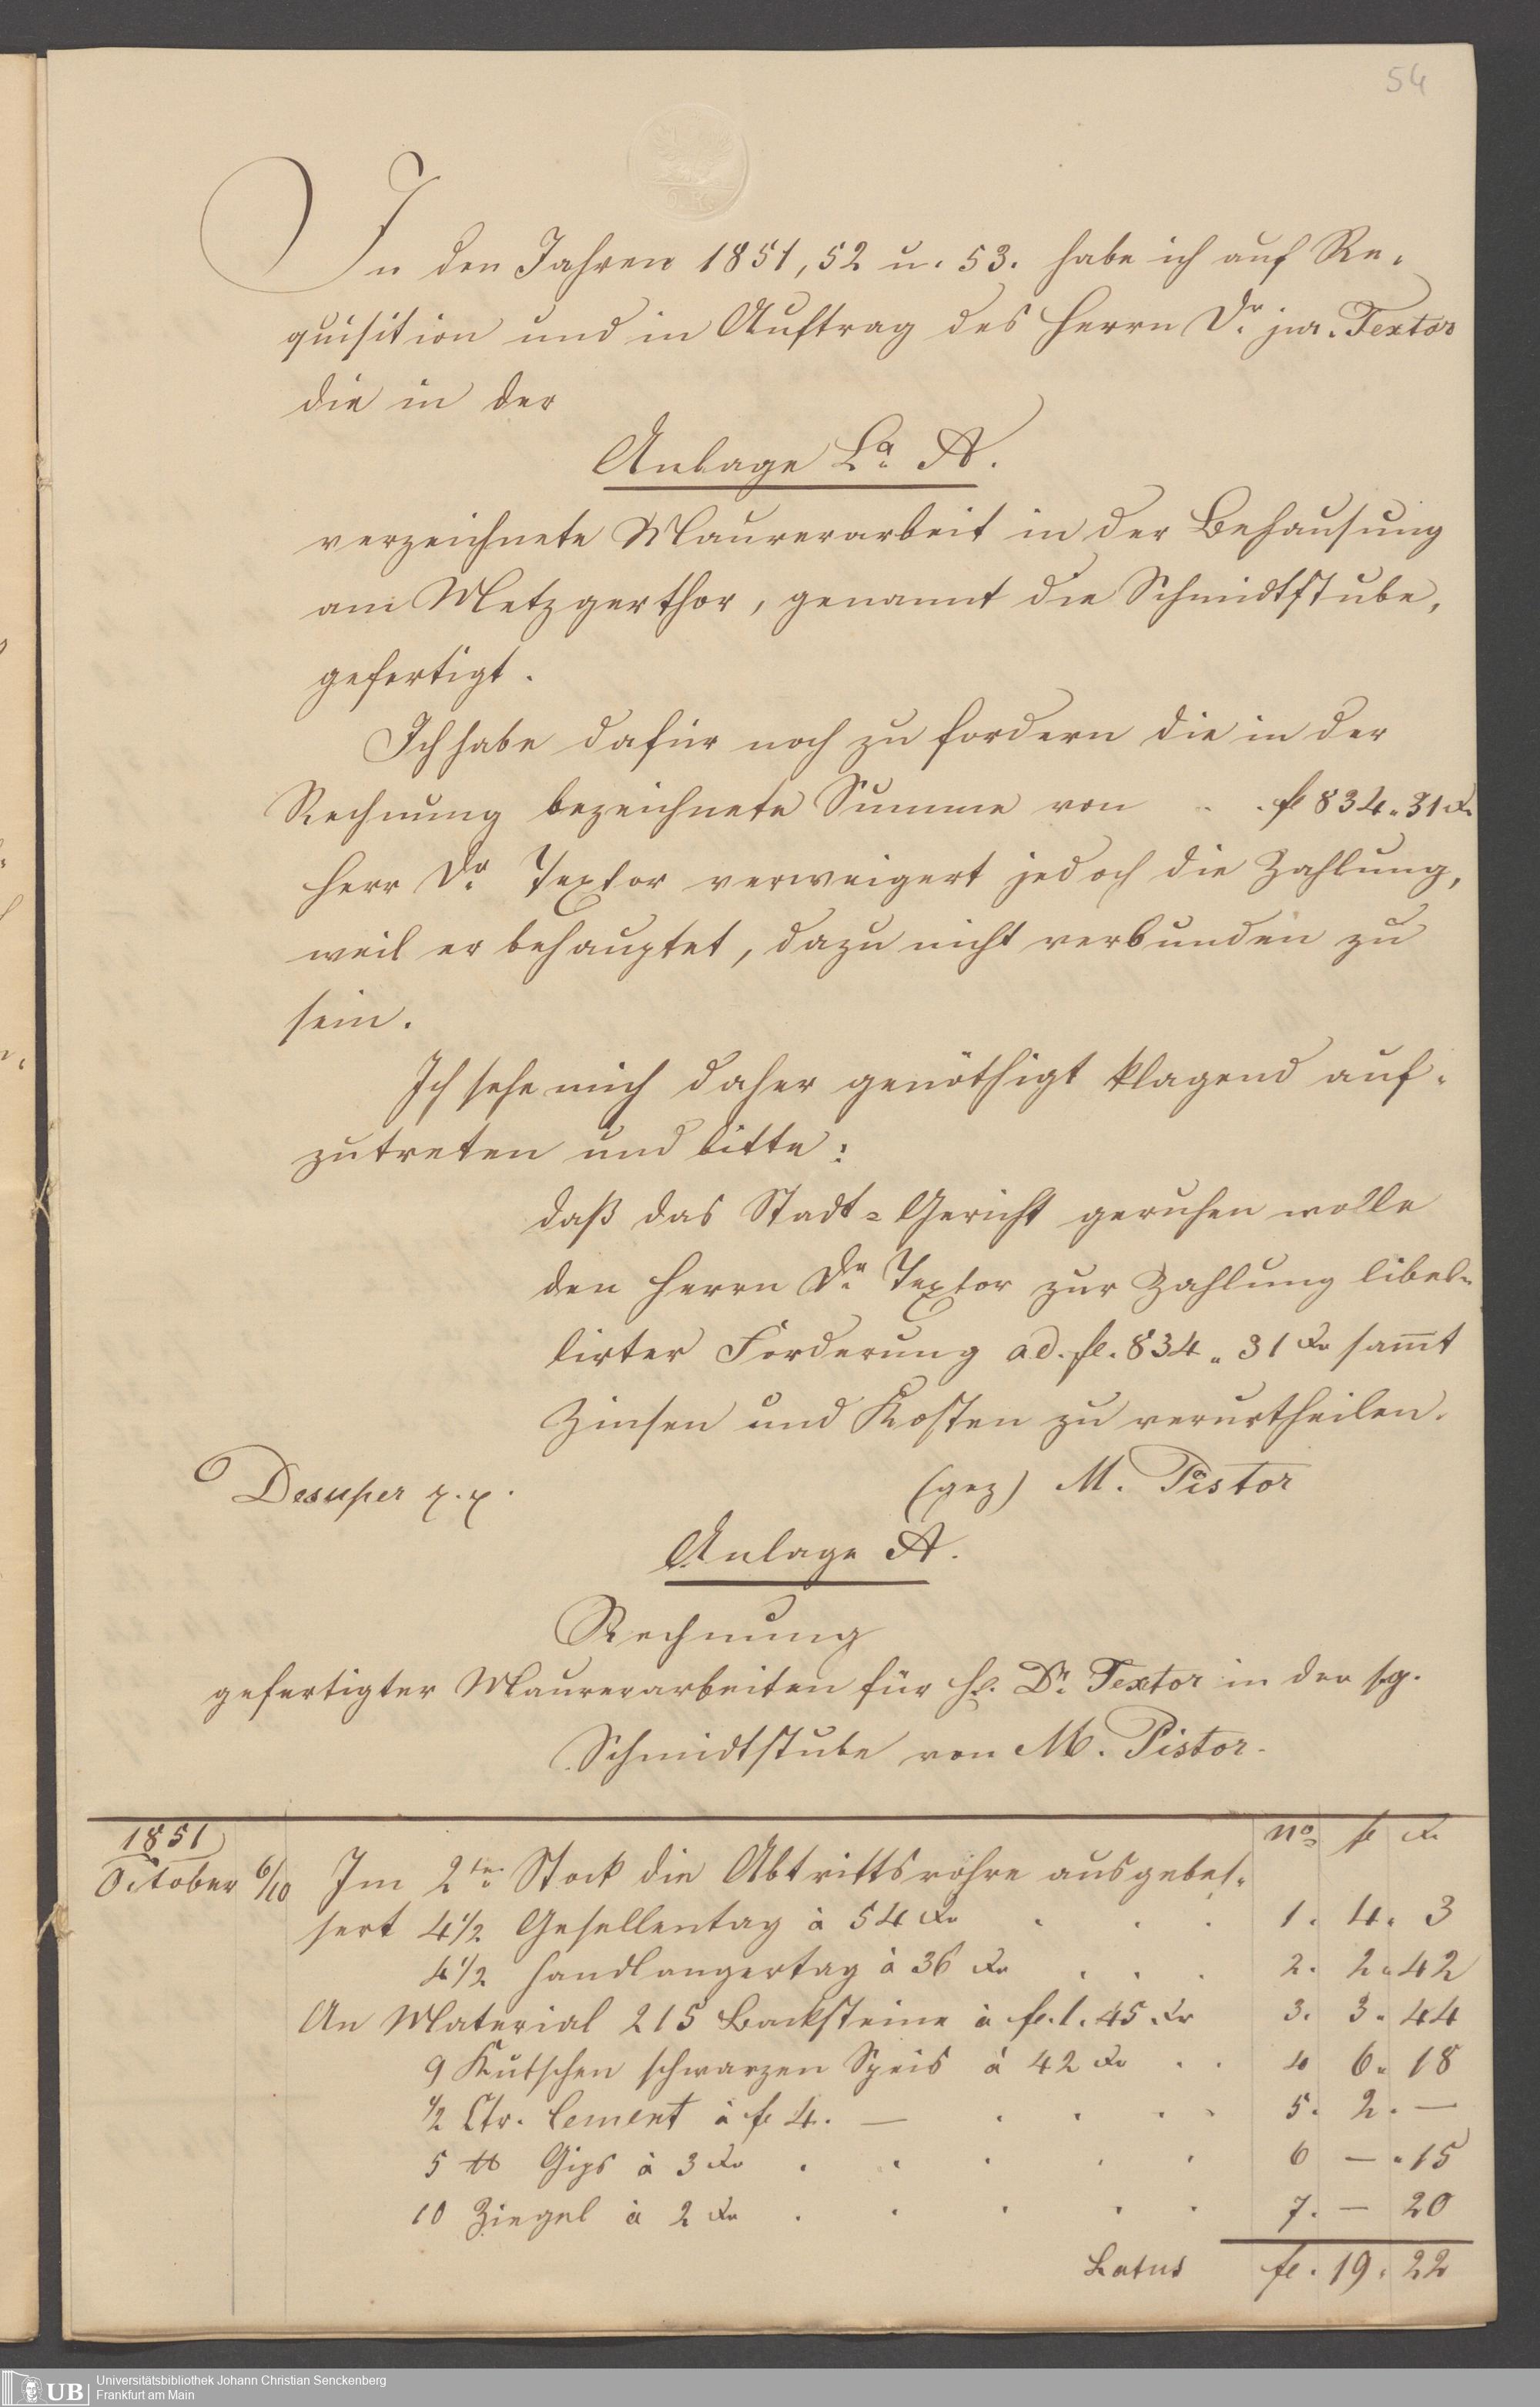 54
In den Jahren 1851, 52 u. 53. habe ich auf Re-
quisition und in Auftrag des Herrn Dr. jur. Textor
die in der
Anlage La. A.
verzeichnete Maurerarbeit in der Behausung
am Metzgerthor, genannt die Schmidtstube,
gefertigt.
Ich habe dafür noch zu fordern die in der
Rechnung bezeichnete Summe von . . fl 834. 31 Xr
Herr Dr. Textor verweigert jedoch die Zahlung,
weil er behauptet, dazu nicht verbunden zu
sein.
Ich sehe mich daher genöthigt klagend auf-
zutreten und bitte:
daß das Stadt-Gericht geruhen wolle
den Herrn Dr. Textor zur Zahlung libel-
lirter Forderung ad. fl. 834. 31 Xr sam̄t
Zinsen und Kosten zu verurtheilen.
Desuper p. p. (gez) M. Pistor
Anlage A.
Rechnung
gefertigter Maurerarbeiten für H. Dr. Textor in der sg.
Schmidtstube von M. Pistor.
1851 No. fl Xr
October 6/10 Im 2ten Stock die Abtrittsrohre ausgebes-
sert 4 1/2 Gesellentag à 54 Xr . . . 1. 4. 3
4 1/2 Handlangertag à 36 Xr . . . 2. 2. 42
An Material 215 Backsteine à fl. 1. 45 Xr 3. 3. 44
9 Kutschen schwarzen Speis à 42 Xr . . 4 6. 18
1/2 Ctr. Cement à fl 4. — . . . . 5. 2. —
5 ℔ Gips à 3 Xr . . . . . 6 — . 15
10 Ziegel à 2 Xr . . . . . 7. — 20
Latus fl. 19. 22
UB
Universitätsbibliothek Johann Christian Senckenberg
Frankfurt am Main